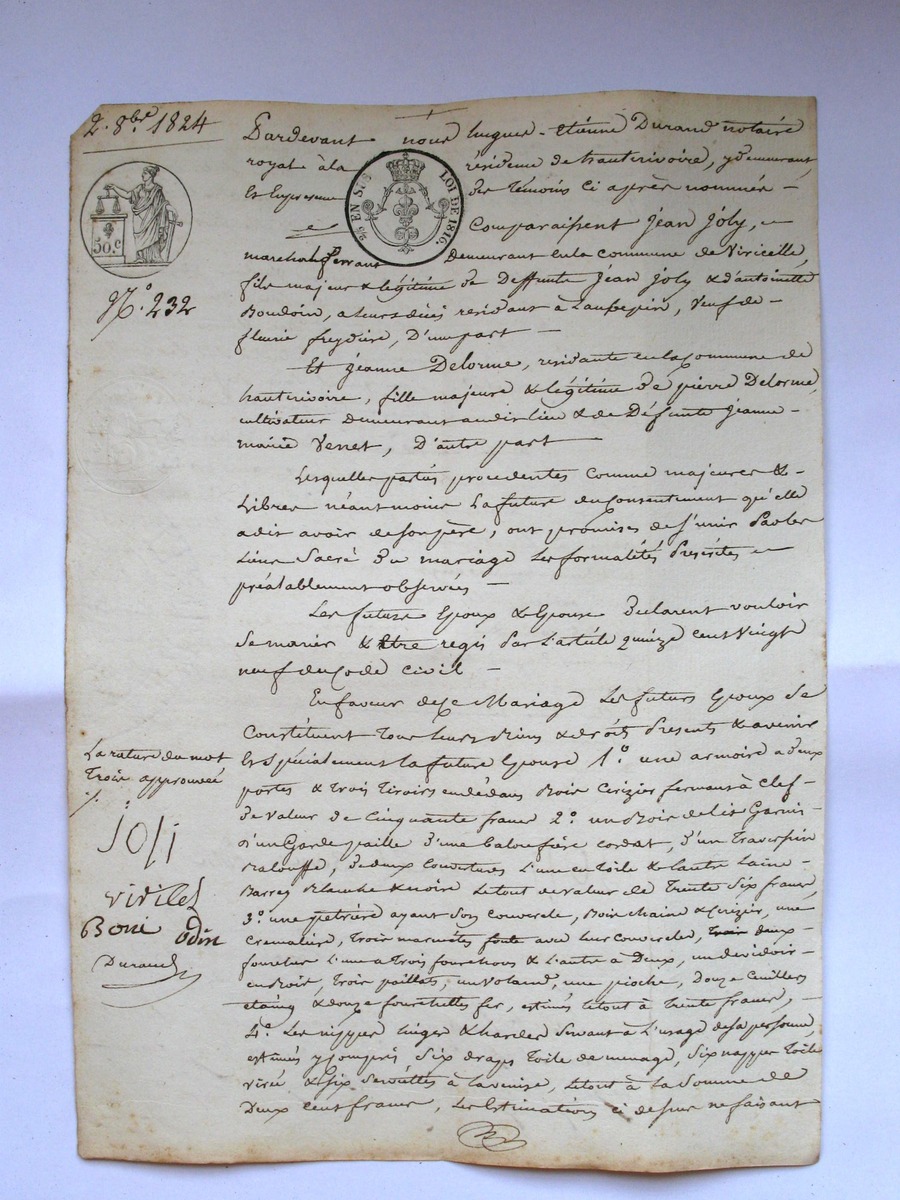 2. 8bre. 1824
Pardevant nous hugues-etienne Durand notaire
royal à la résidence de hauterivoire, y demeurant
et en presence des témoins ci après nommés -
50.c
25 EN SUS LOI DE 1816.
Comparaissent Jean Joly,
marechal ferrant Demeurant en la commune de Viricelle,
fils majeur & légitime de Deffunts Jean Joly & d'antoinette
Boudoin, a leurs décès residant à Laubepin, Veuf de
N.º 232
fleurie freydiere, D'une part -
Et jeanne Delorme, residante en la Commune de
hauterivoire, fille majeure & légitime De pierre Delorme,
cultivateur Demeurant audit lieu & de Défunte jeanne
marie Venet, D'autre part -
Lesquelles partés procedentes comme majeures &
Libres néantmoins La future du Consentement qu'elle
a dit avoir de son père, ont promises de s'unir Par les
Liens Sacré Du mariage Les formalités Préscrites
préalablement observées -
Les future Epoux & Epouse Declarent vouloir
se marier & être regis Par L'article quinze cent vingt
neuf du Code civil -
En faveur de ce Mariage Les futurs Epoux se
Constituent Tous leurs Biens & droits Présents & avenir
Et Spécialement la future Epouse 1.º une armoire a deux
portes & Trois Tiroirs en dédans Bois Cerizier fermant à clef
de valeur de Cinquante francs 2.º un Bois de lit Garnis
d'un Garde paille D'une Baloufière cordat, D'un Traversin
Balouffe, De deux Couvertures L'une en Toile & L'autre Laine
Barrez Blanche & noire Le tout de valeur de Trente Six francs,
3.º une petrière ayant Son Couvercle, Bois chaine & Cerizier, une
Cremalière, Trois marmites fonte avec leur couvercles, Trois deux
fourches L'une a Trois fourchons & L'autre à Deux, un devidoir
en Bois, Trois paillats, un Volant, une pioche, Douze Cuilliers
etaing & douze fourchettes fer, estimés le tout à Trente francs,
4.º Les nippes linges & hardes Servant à L'usage de sa personne,
estimés y compris Six draps Toile de menage, Six nappes Toile
& Six Serviettes à la venise, le tout à la Somme de
Deux cent francs, Les Estimations ci dessus ne faisant
La rature du mot
Trois approuvée
Joli
Boni Odin
Durand